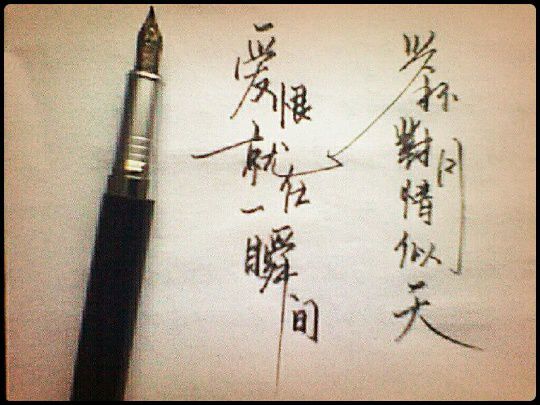 爱恨就在一瞬间
举杯對月情似天